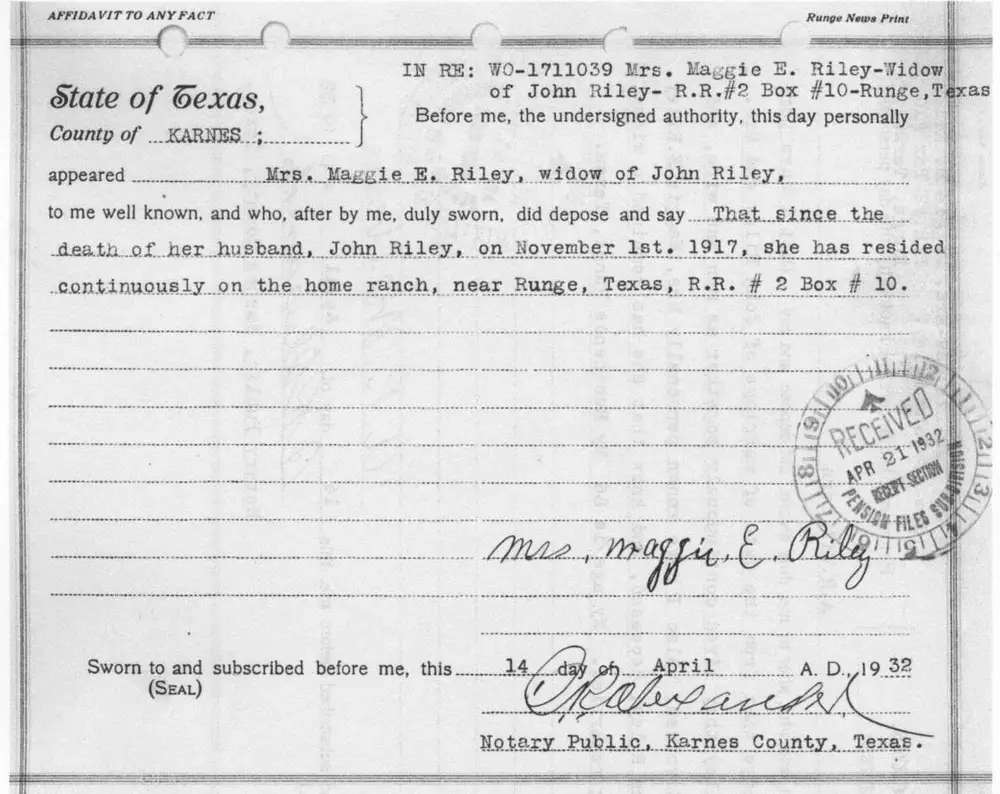 AFFIDAVIT TO ANY FACT
Runge News Print
IN RE: WO-1711039 Mrs. Maggie E. Riley-Widow
of John Riley- R.R.#2 Box #10-Runge,Texas
State of Texas,
County of KARNES ;
Before me, the undersigned authority, this day personally
appeared Mrs. Maggie E. Riley, widow of John Riley,
to me well known, and who, after by me, duly sworn, did depose and say That since the
death of her husband, John Riley, on November 1st. 1917, she has resided
continuously on the home ranch, near Runge, Texas, R.R. # 2 Box # 10.
RECEIVED
APR 21 1932
RECEIPT SECTION
PENSION FILES SUBDIVISION
Mrs, Maggie, E, Riley
Sworn to and subscribed before me, this 14 day of April A. D., 1932
(SEAL)
Alexander
Notary Public, Karnes County, Texas.